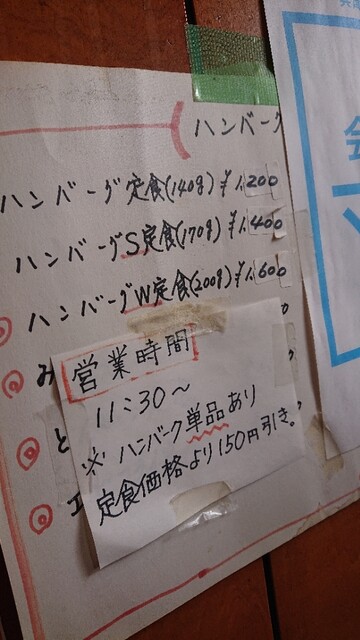 ハンバーグ
ハンバーグ定食(140g) ¥1,200
ハンバーグS定食(170g) ¥1,400
ハンバーグW定食(200g) ¥1,600
み
と
エ
営業時間
11:30〜
※ ハンバーク単品あり
定食価格より150円引き。